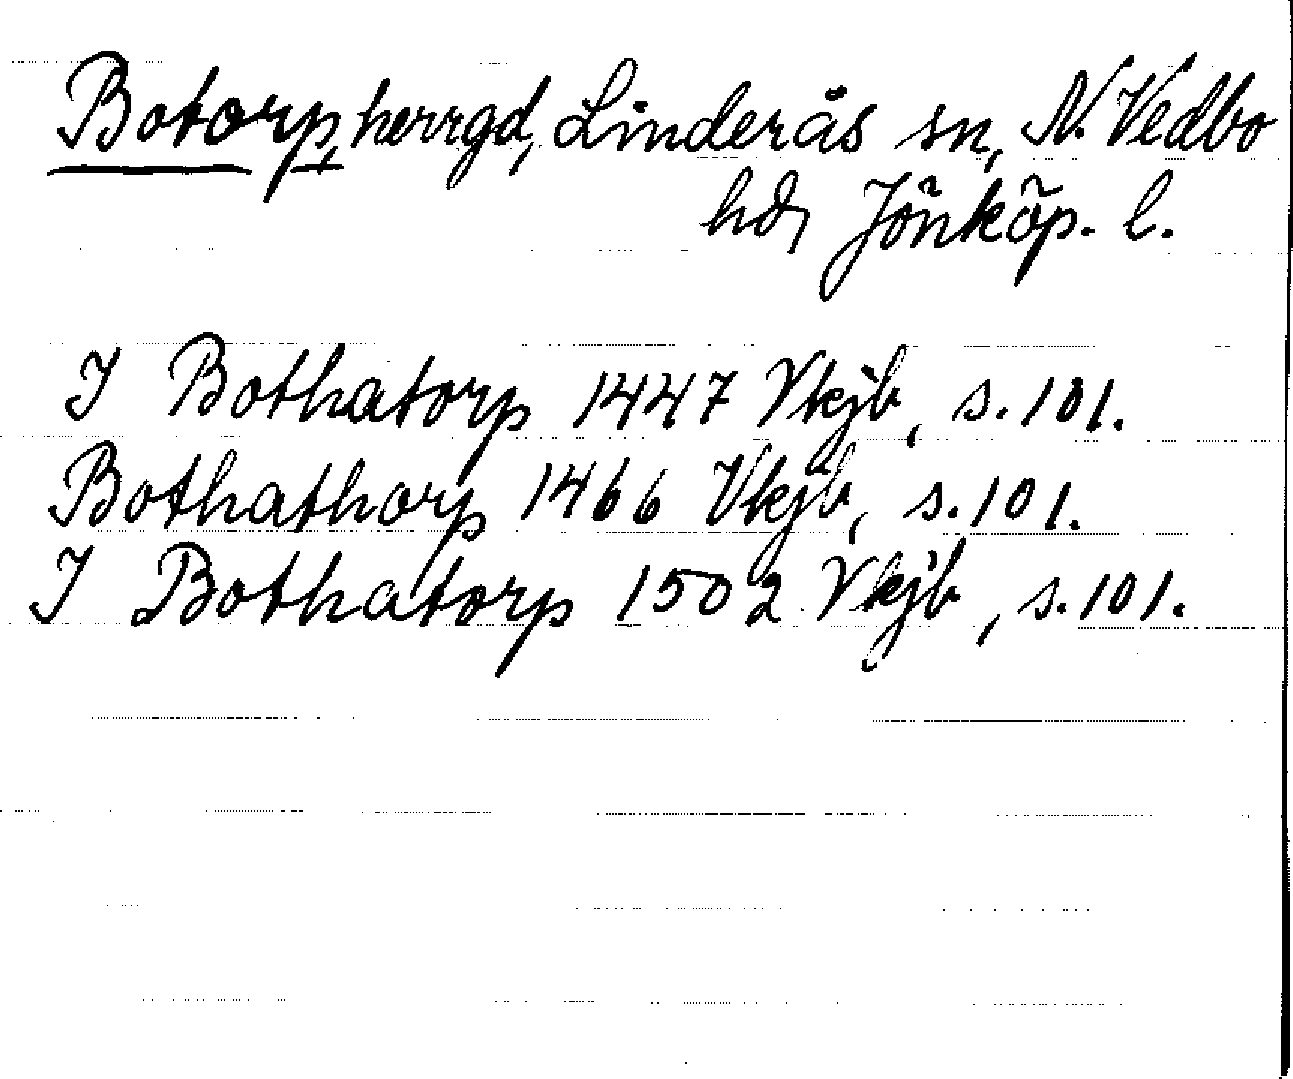 Botorp, herrgd, Linderås sn, N. Vedbo
hd, Jönköp. l.
I Bothatorp 1447 Vkjb, s. 101.
Bothathorp 1466 Vkjb, s. 101.
I Bothatorp 1502 Vkjb, s. 101.